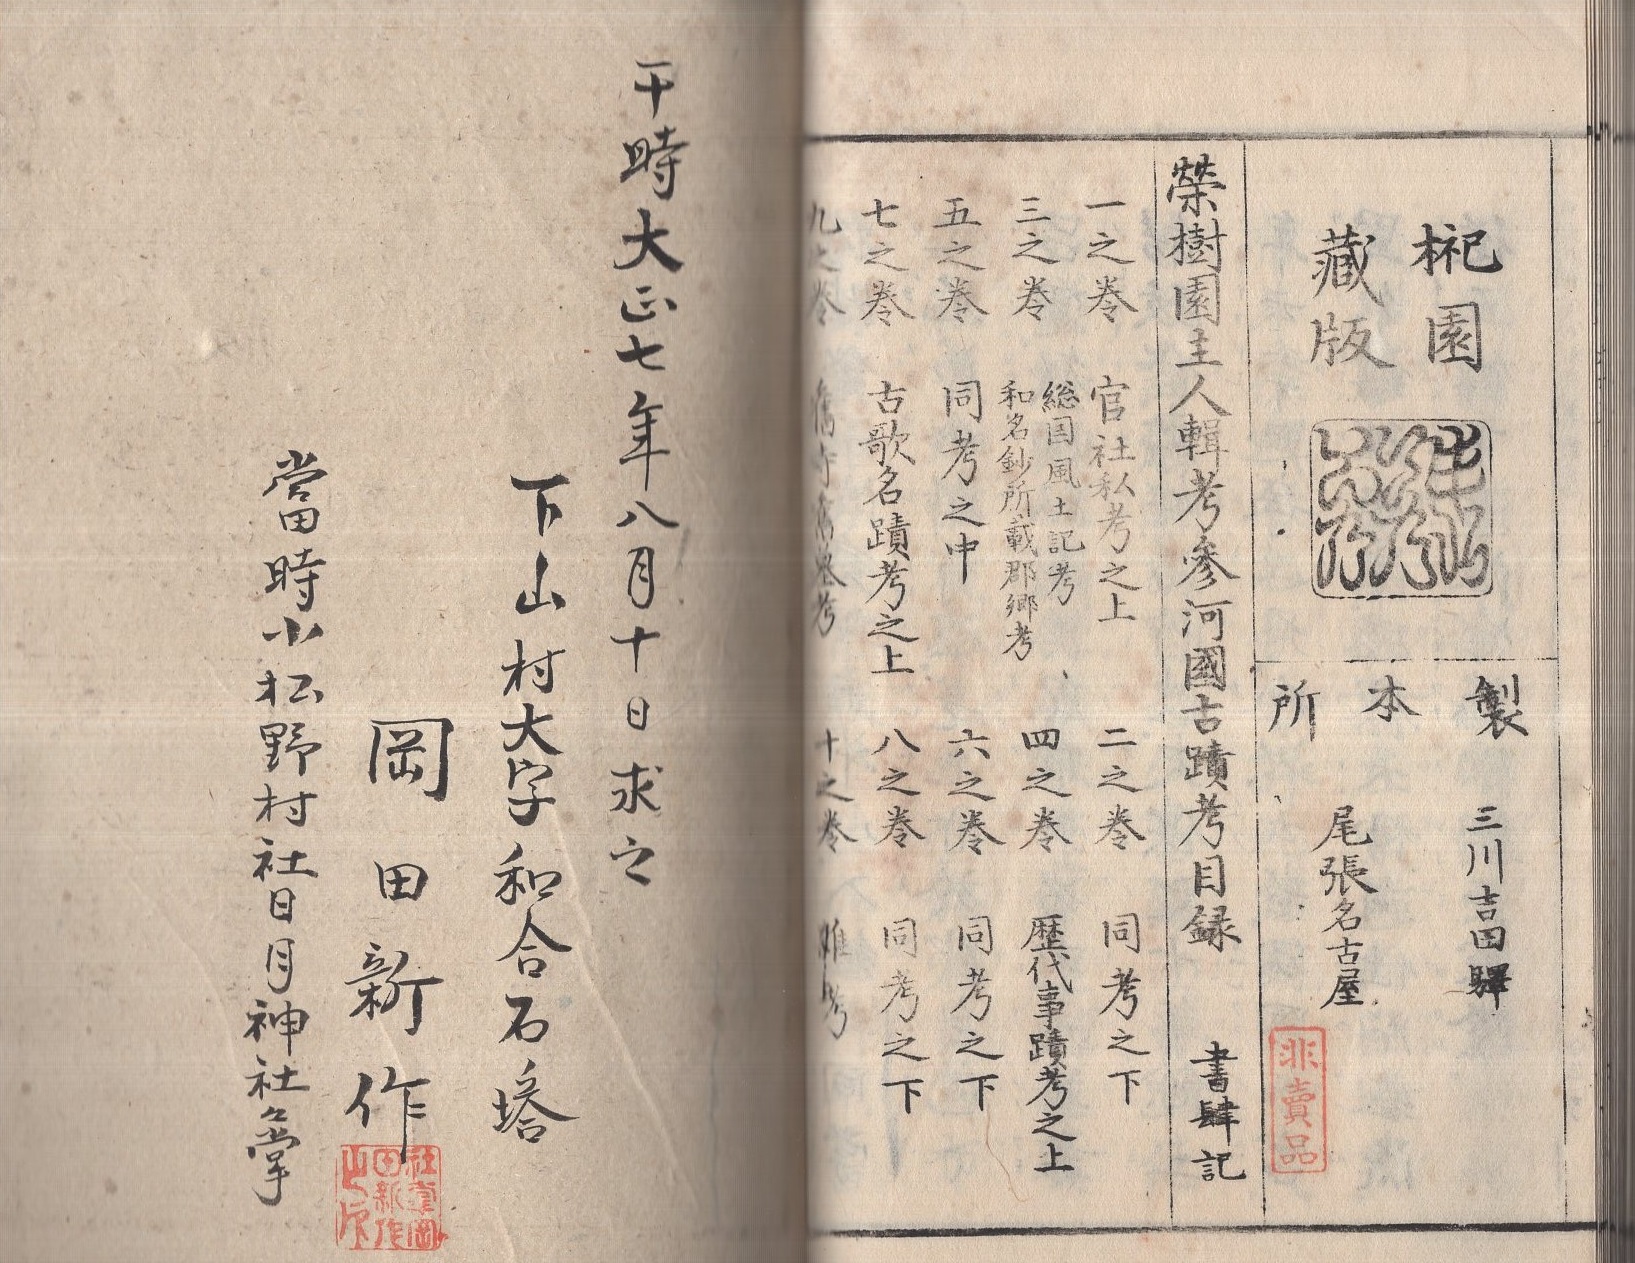 榊園
藏版
製本所
三川吉田驛
尾張名古屋
非賣品
榮樹園主人輯考參河國古蹟考目録 書肆記
一之巻 官社私考之上 二之巻 同考之下
三之巻 総国風土記考 和名鈔所載郡郷考 四之巻 歴代事蹟考之上
五之巻 同考之中 六之巻 同考之下
七之巻 古歌名蹟考之上 八之巻 同考之下
九之巻 十之巻 雑考
干時大正七年八月十日求之
下山村大字和合石塔
岡田新作
當時小松野村社日月神社掌